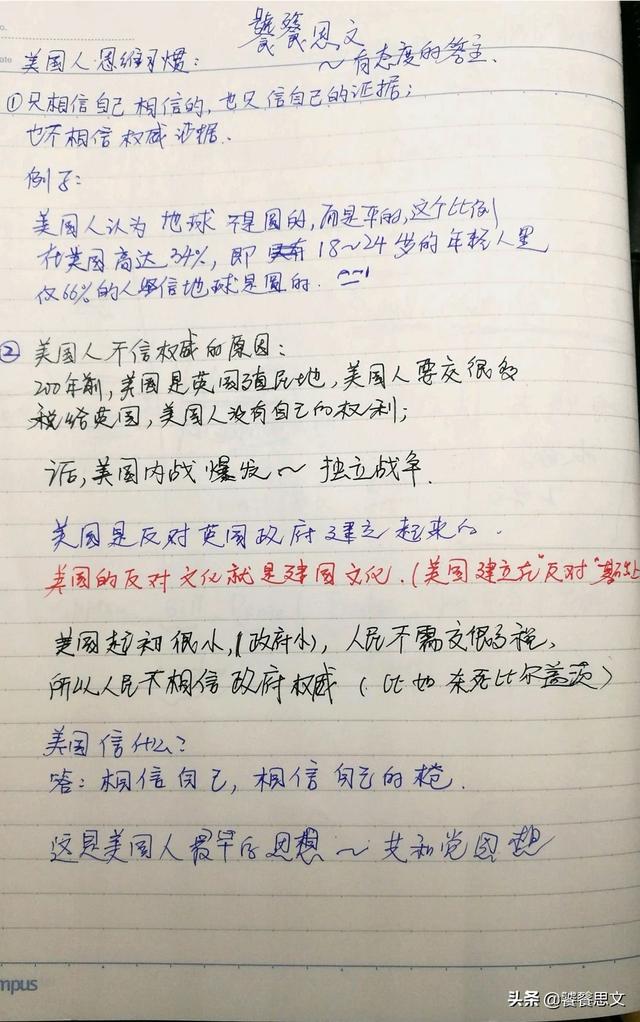 饕餮思文
美国人思维习惯:
~有态度的答主.
①只相信自己相信的,也只信自己的证据;
也不相信权威证据.
例子:
美国人认为 地球 不是圆的,而是平的,这个比例
在美国高达34%,即 18~24岁的年轻人里
仅66%的人坚信地球是圆的.
② 美国人不信权威的原因:
200年前,美国是英国殖民地,美国人要交很多
税给英国,美国人没有自己的权利;
后,美国内战爆发~独立战争.
美国是反对英国政府建立起来的.
美国的反对文化就是建国文化.(美国建立在"反对"基础上
美国起初很小,(政府小),人民不需交很多税,
所以人民不相信政府权威(比如杀死比尔盖茨)
美国信什么?
答:相信自己,相信自己的枪.
这是美国人最早的思想~共和党思想
mpus
头条@饕餮思文